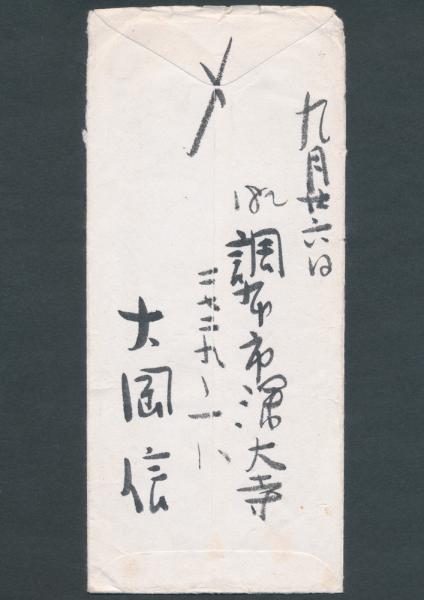 〆
九月廿六日
182 調布市深大寺
二七二九ノ一八
大岡信